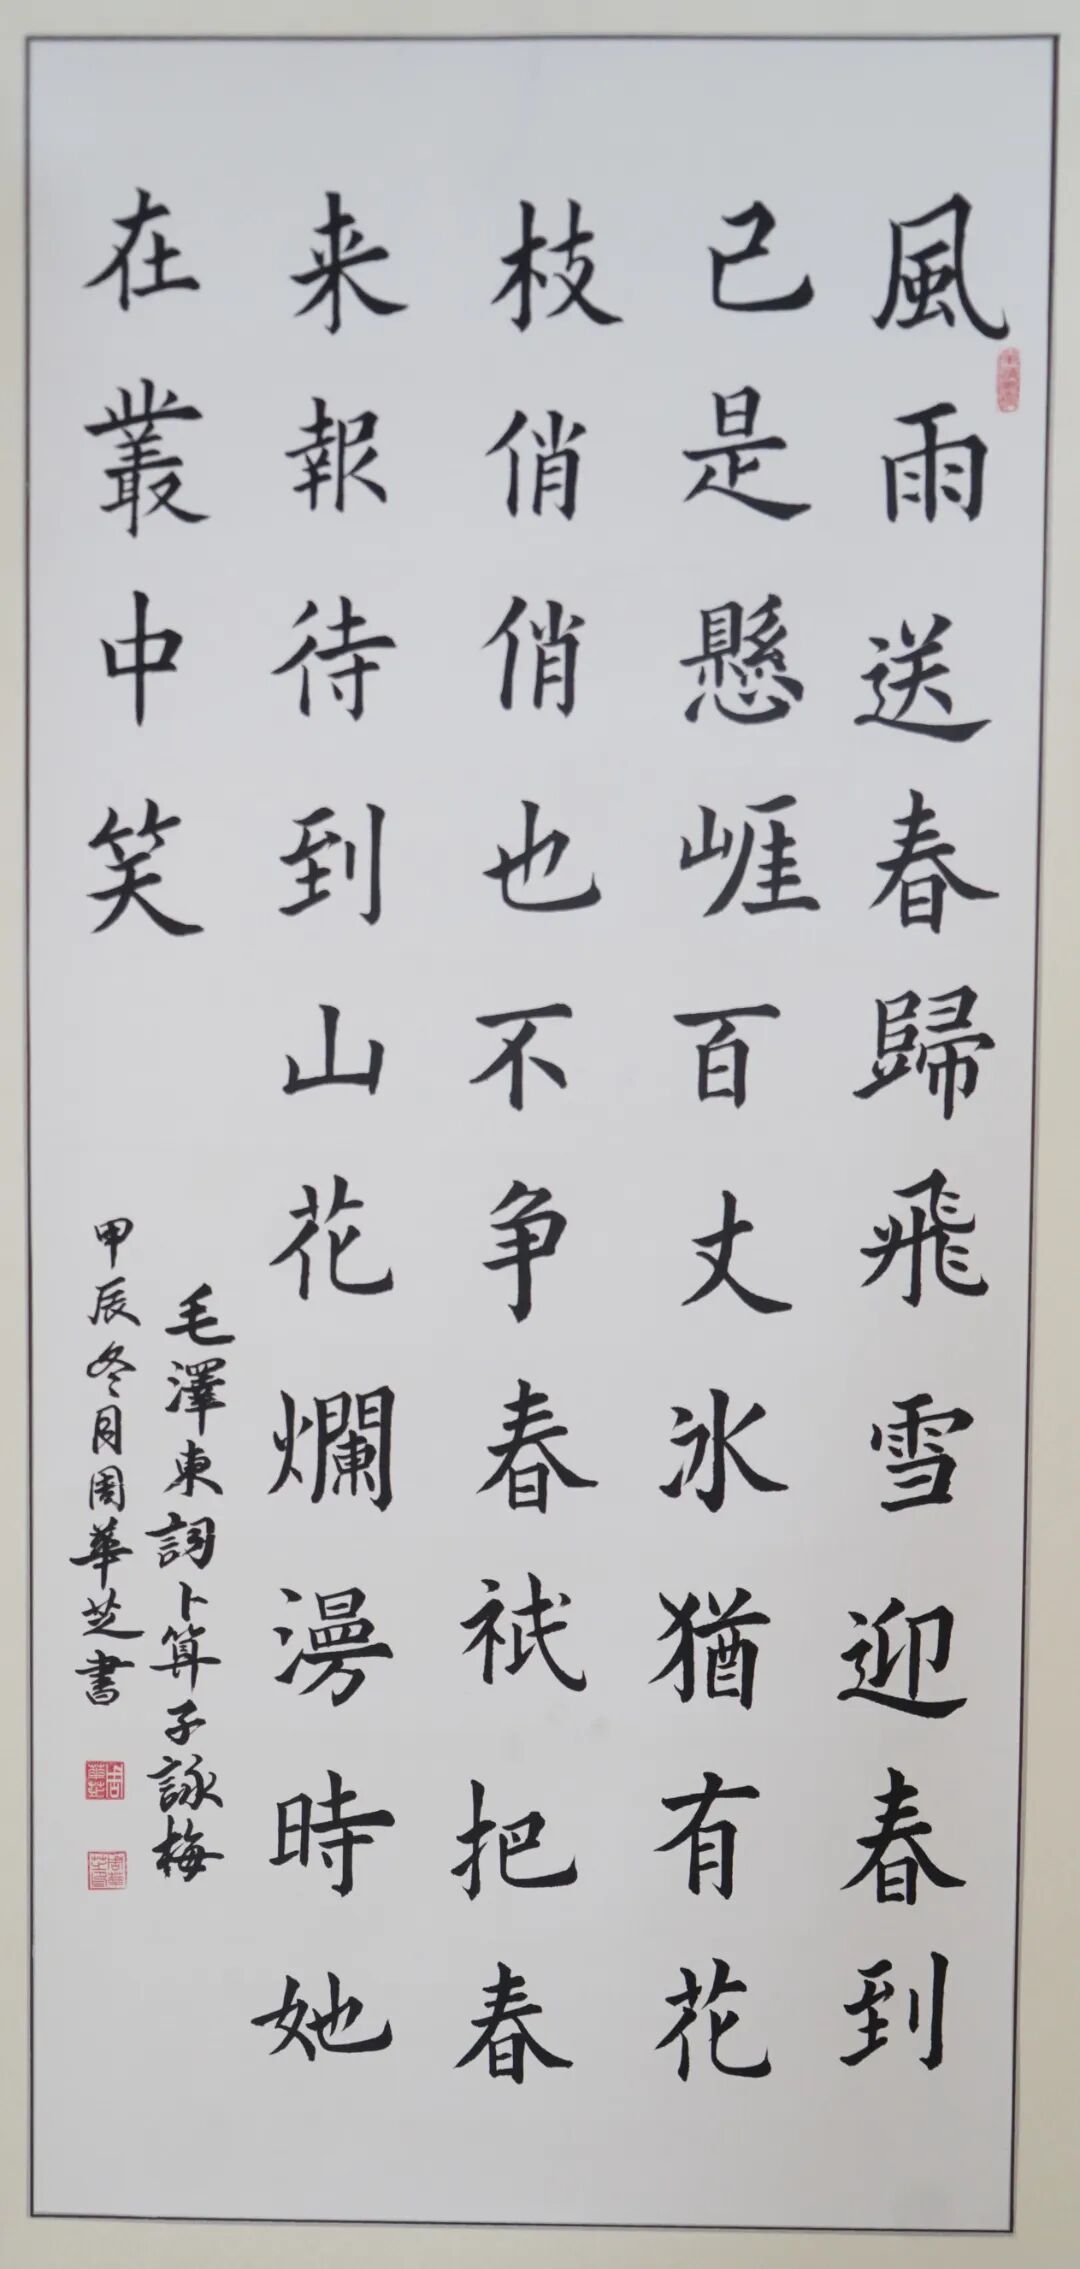 風雨送春歸飛雪迎春到
已是懸崕百丈冰猶有花
枝俏俏也不争春祇把春
来報待到山花爛漫時她
在叢中笑
毛澤東詞卜算子詠梅
甲辰冬月周華芝書